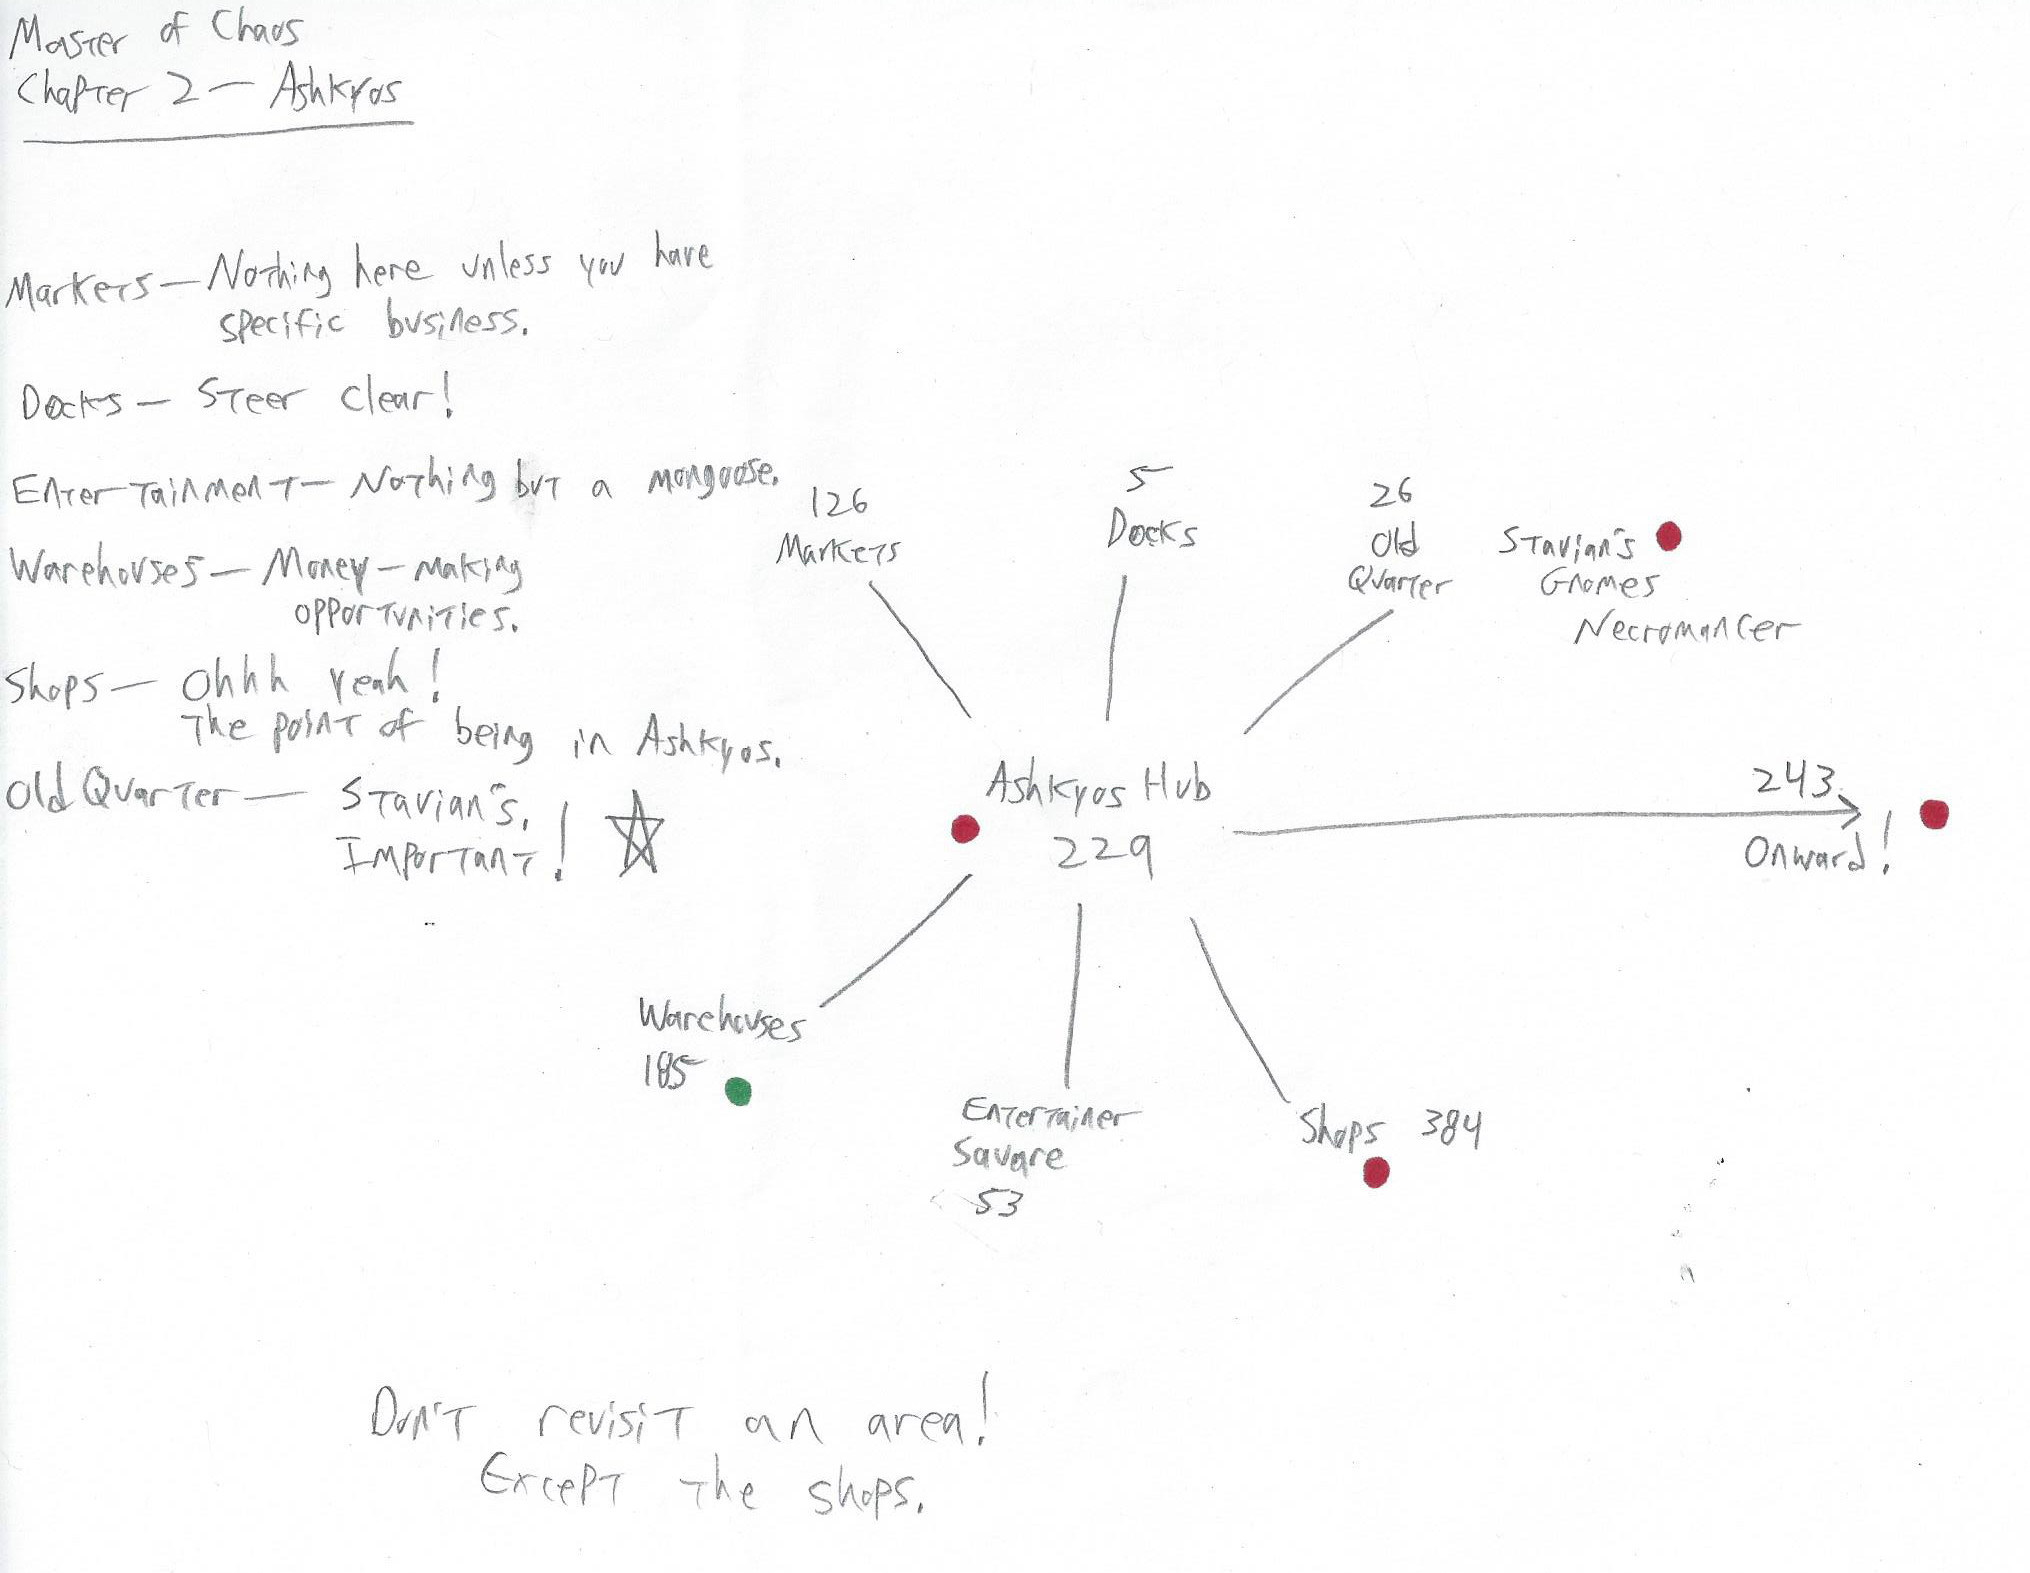 Master of Chaos
Chapter 2 — Ashkyos
Markets — Nothing here unless you have
specific business.
Docks — Steer clear!
Entertainment — Nothing but a mongoose.
Warehouses — Money-making
opportunities.
Shops — Ohhh yeah!
The point of being in Ashkyos.
Old Quarter — Stavian's.
Important!
126
Markets
5
Docks
26
Old
Quarter
Stavian's
Gnomes
Necromancer
Ashkyos Hub
229
243
Onward!
Warehouses
185
Entertainer
Square
53
Shops 384
Don't revisit an area!
Except the shops.